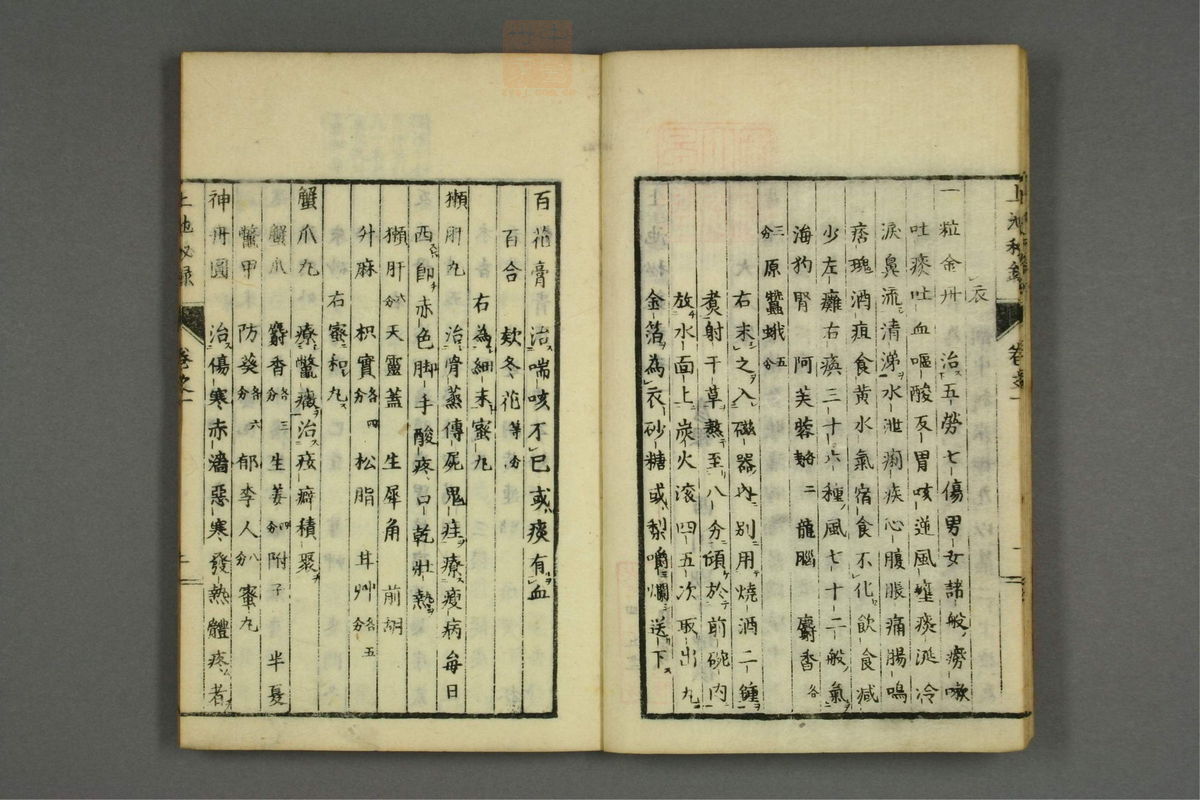 衣
一粒金丹 治五勞七傷男女諸般癆嗽
吐痰吐血嘔酸反胃咳逆風壅痰涎冷
淚鼻流清涕水泄痢疾心腹脹痛腸鳴
痞塊酒疸食黃水氣宿食不化飲食減
少左癱右瘓三十六種風七十二般氣
海狗腎 阿芙蓉 龍腦 麝香各
三分 原蠶蛾五分
右末之入磁器內別用燒酒二鍾
煮射干草熬至八分傾於前碗內
放水面上炭火滾四五次取出丸
金箔為衣砂糖或梨嚼爛送下
百花膏 治喘咳不已或痰有血
百合 欵冬花等分
右為細末蜜丸
獺肝丸 治骨蒸傳屍鬼疰療瘦病每日
西即赤色脚手酸疼口乾壯熱
獺肝六分 天靈蓋 生犀角 前胡
升麻 枳實各四分 松脂 甘艸各五分
右蜜和丸
蟹爪丸 療鱉癥治痃癖積聚
蟹爪 麝香各三分 生姜四分 附子 半夏
鱉甲 防葵各六分 郁李人八分 蜜丸
神丹圓 治傷寒赤濇惡寒發熱體疼者
上池秘錄 卷之一